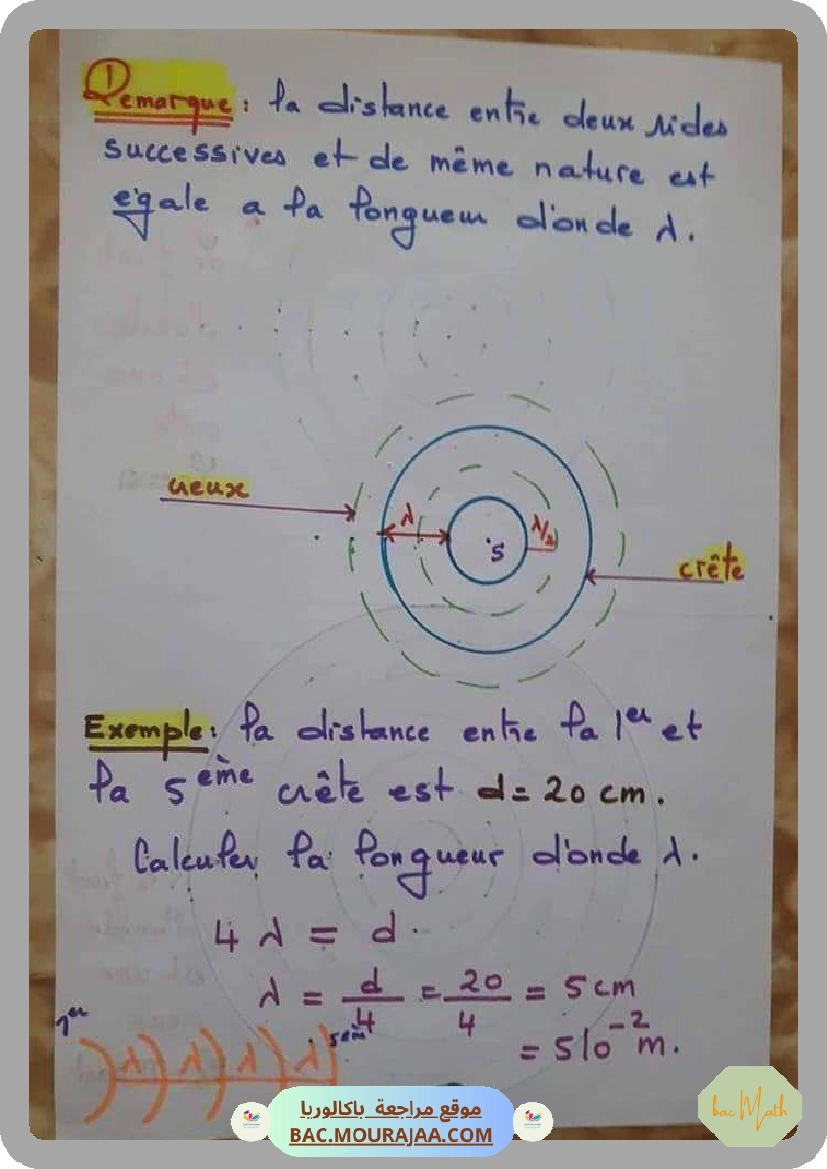 Remarque : la distance entre deux rides
successives et de même nature est
égale a la longueur d'onde λ.
creux
λ
λ/2
S
crête
Exemple : la distance entre la 1er et
la 5ème crête est d = 20 cm.
Calculer la longueur d'onde λ.
4 λ = d.
λ = d/4 = 20/4 = 5 cm
= 5 10⁻² m.
1er
5em
λ λ λ λ
موقع مراجعة باكالوريا
BAC.MOURAJAA.COM
bac Math